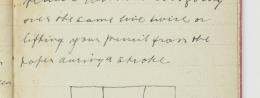 over the same line twice or
lifting your pencil from the
paper during a stroke